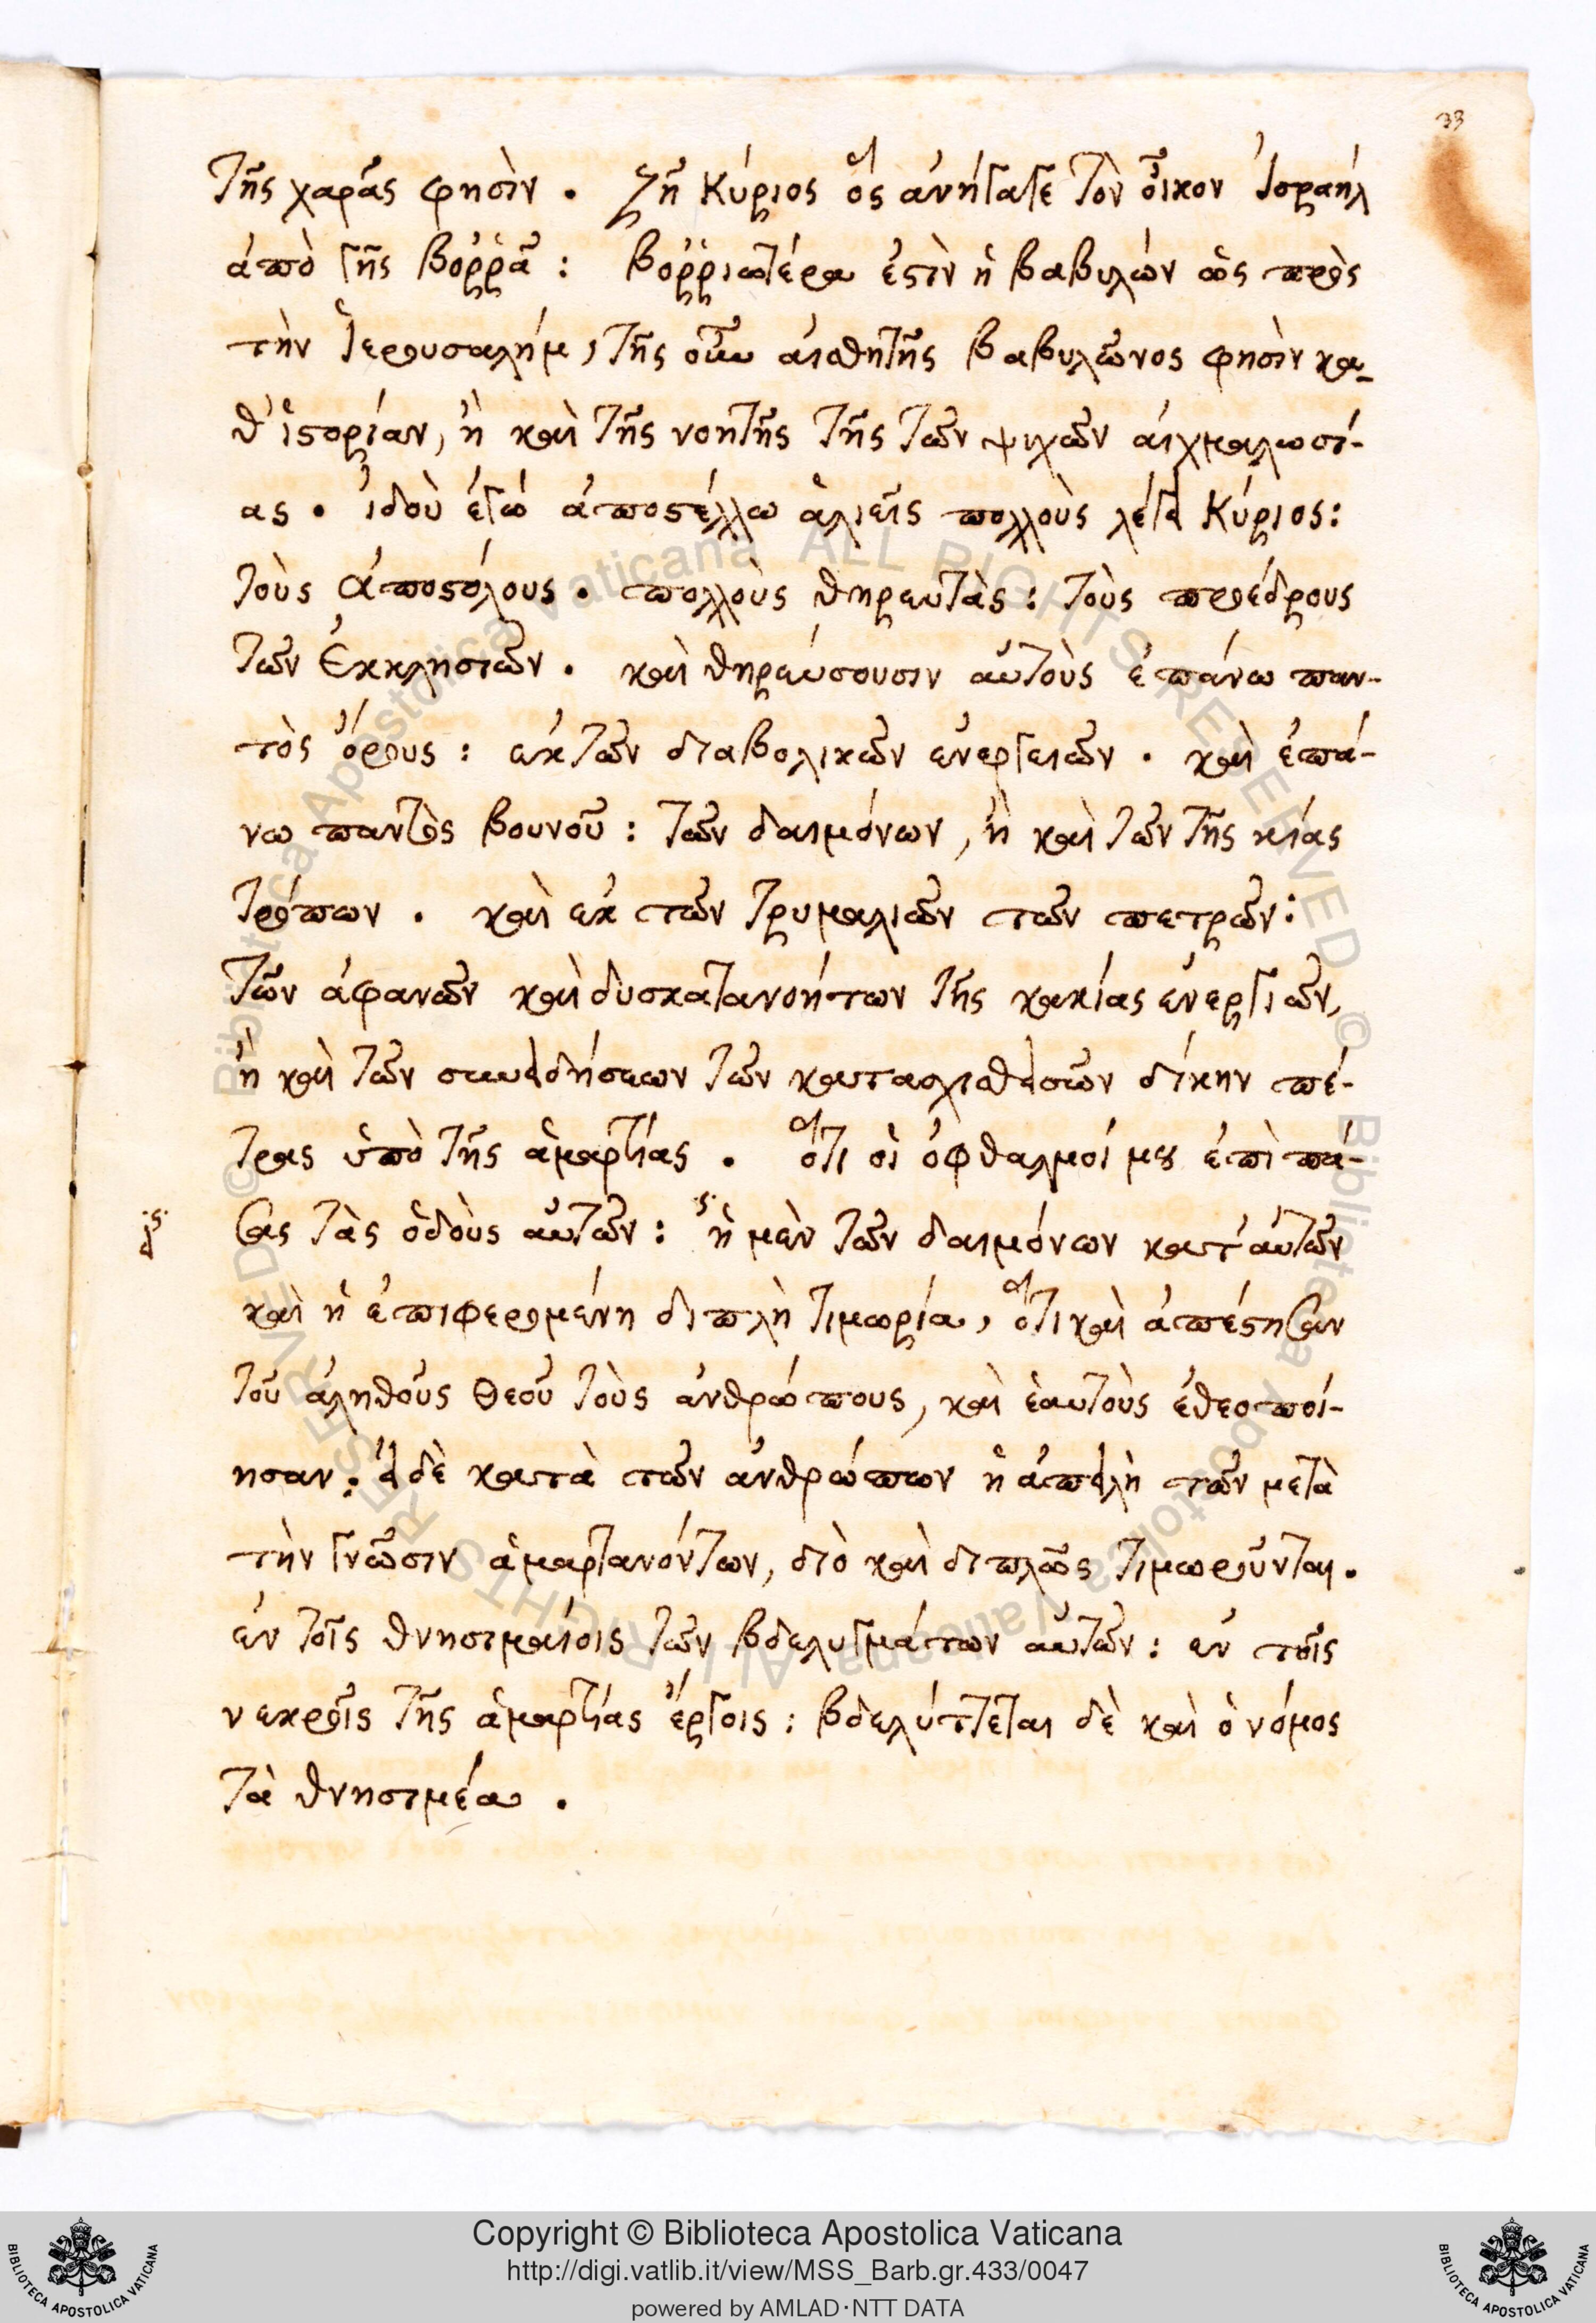 33
τῆς χαρᾶς φησὶν . Ζῆ Κύριος ὃς ἀνήγαγε τὸν οἶκον Ἰσραὴλ
ἀπὸ γῆς βοῤῥᾶ : βοῤῥιωτέρα ἐστὶν ἡ βαβυλών ὡς πρὸς
τὴν Ἱερουσαλήμ, τῆς οὖν αἰσθητῆς βαβυλῶνος φησὶν κα-
θ' ἱστορίαν, ἢ καὶ τῆς νοητῆς τῆς τῶν ψυχῶν αἰχμαλωσί-
ας . ἰδοὺ ἐγώ ἀποστέλλω ἁλιεῖς πολλοὺς λέγει Κύριος:
τοὺς ἀποστόλους . πολλοὺς θηρευτὰς : τοὺς προέδρους
τῶν Ἐκκλησιῶν . καὶ θηρεύσουσιν αὐτοὺς ἐπάνω παν-
τὸς ὄρους : ἐκ τῶν διαβολικῶν ἐνεργειῶν . καὶ ἐπά-
νω παντὸς βουνοῦ : τῶν δαιμόνων, ἢ καὶ τῶν τῆς
τρόπων . καὶ ἐκ τῶν τρυμαλιῶν τῶν πετρῶν :
τῶν ἀφανῶν καὶ δυσκατανοήτων τῆς κακίας ἐνεργιῶν,
ἢ καὶ τῶν συνειδήσεων τῶν δίκην πέ-
τρας ὑπὸ τῆς ἁμαρτίας . ὅτι οἱ ὀφθαλμοί μου ἐπὶ πά-
σας τὰς ὁδοὺς αὐτῶν : ἡ μὲν τῶν δαιμόνων κατ' αὐτῶν
καὶ ἡ ἐπιφερομένη διπλὴ τιμωρία, ὅτι καὶ ἀπέστησαν
τοῦ ἀληθοῦς Θεοῦ τοὺς ἀνθρώπους, καὶ ἑαυτοὺς ἐθεοποί-
ησαν : εἰ δὲ κατὰ τῶν ἀνθρώπων ἡ ἀπειλὴ τῶν μετὰ
τὴν γνῶσιν ἁμαρτανόντων, διὸ καὶ διπλῶς τιμωροῦνται .
ἐν τοῖς θνησιμαίοις τῶν βδελυγμάτων αὐτῶν : ἐν τοῖς
νεκροῖς τῆς ἁμαρτίας ἔργοις : βδελύττεται δὲ καὶ ὁ νόμος
τὰ θνησιμέα .
Copyright © Biblioteca Apostolica Vaticana
http://digi.vatlib.it/view/MSS_Barb.gr.433/0047
powered by AMLAD·NTT DATA
BIBLIOTECA APOSTOLICA VATICANA
BIBLIOTECA APOSTOLICA VATICANA
© Biblioteca Apostolica Vaticana ALL RIGHTS RESERVED
© Biblioteca Apostolica Vaticana ALL RIGHTS RESERVED